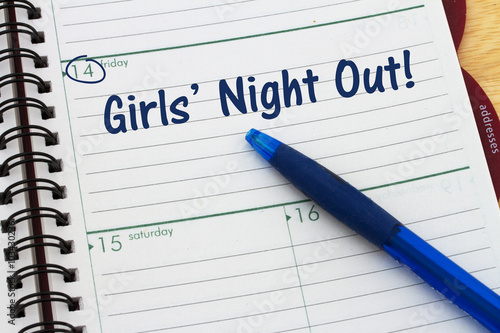 14 friday
Girls' Night Out!
15 saturday
16
addresses